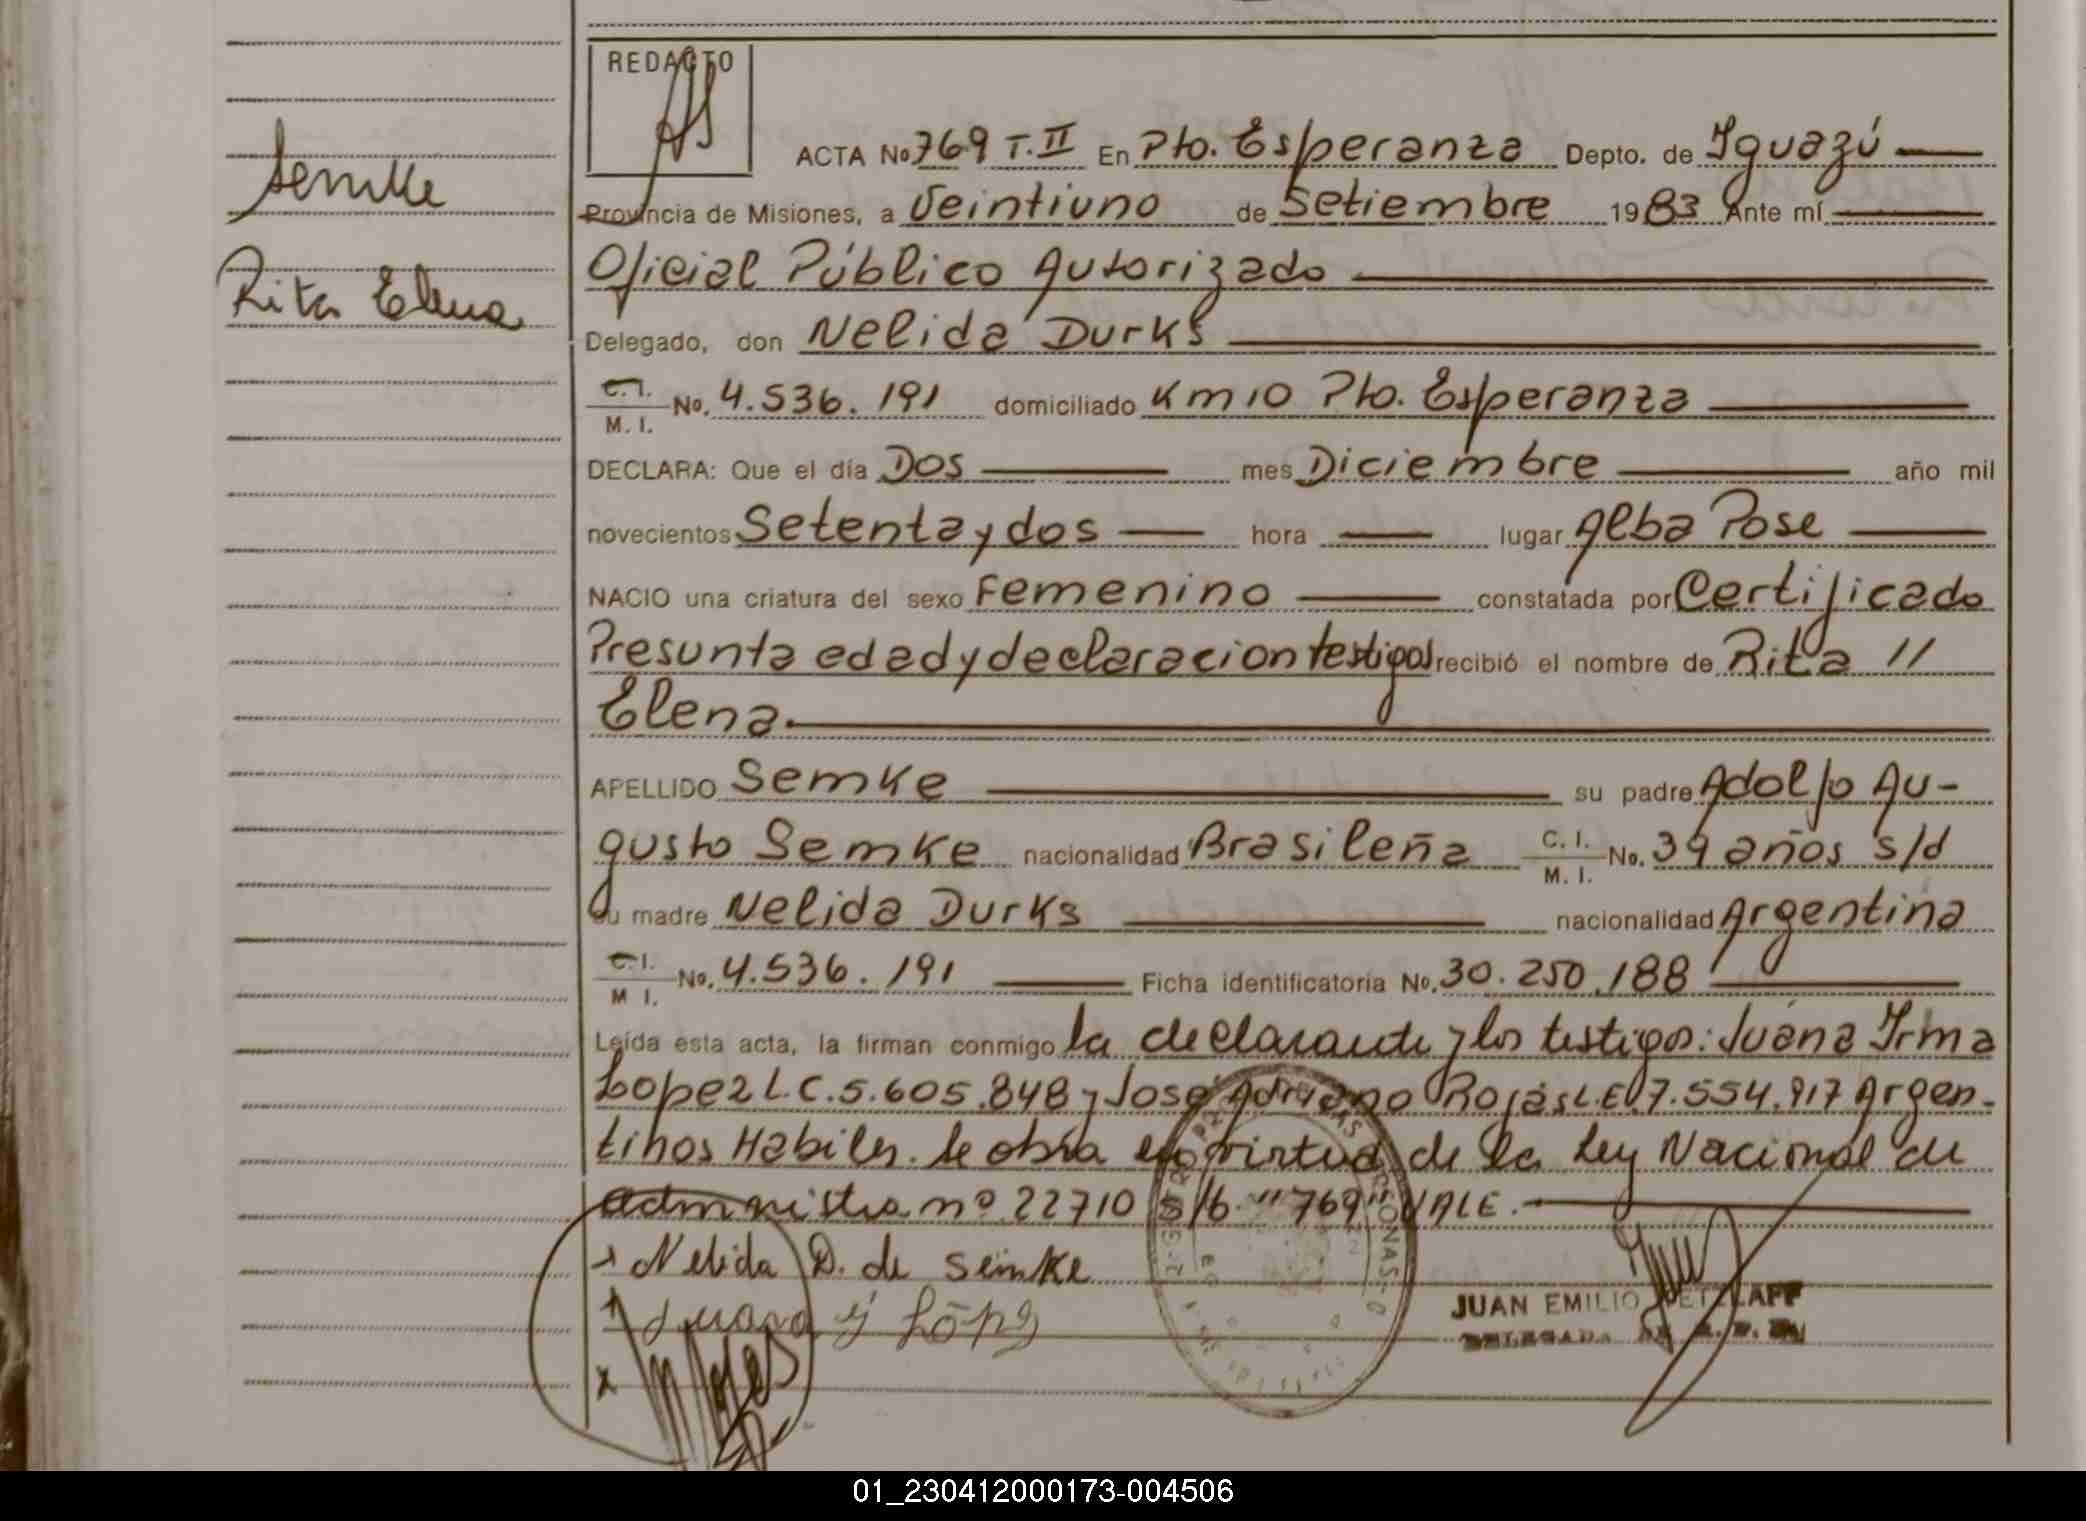 REDACTO
Semke
Rita Elena
ACTA No 769 T.II En Pto. Esperanza Depto. de Iguazú
Provincia de Misiones, a Veintiuno de Setiembre 1983 Ante mí
Oficial Público Autorizado
Delegado, don Nelida Durks
C.I. M.I. No. 4.536.191 domiciliado Km 10 Pto. Esperanza
DECLARA: Que el día Dos mes Diciembre año mil
novecientos Setenta y dos hora lugar Alba Pose
NACIO una criatura del sexo Femenino constatada por Certificado
Presunta edad y declaracion testigos recibió el nombre de Rita //
Elena.
APELLIDO Semke su padre Adolfo Au-
gusto Semke nacionalidad Brasileña C.I. M.I. No. 39 años s/d
su madre Nelida Durks nacionalidad Argentina
C.I. M I. No. 4.536.191 Ficha identificatoria No. 30.250.188
Leída esta acta, la firman conmigo la declarante y los testigos: Juana Irma
Lopez L.C. 5.605.848 y José Adriano Rojas L.E. 7.554.917 Argen-
tinos Habiles. Se obra en virtud de la Ley Nacional de
administra nº 22710 s/b "769" VALE.
Nelida D. de Semke
Juana I López
JUAN EMILIO
01_230412000173-004506